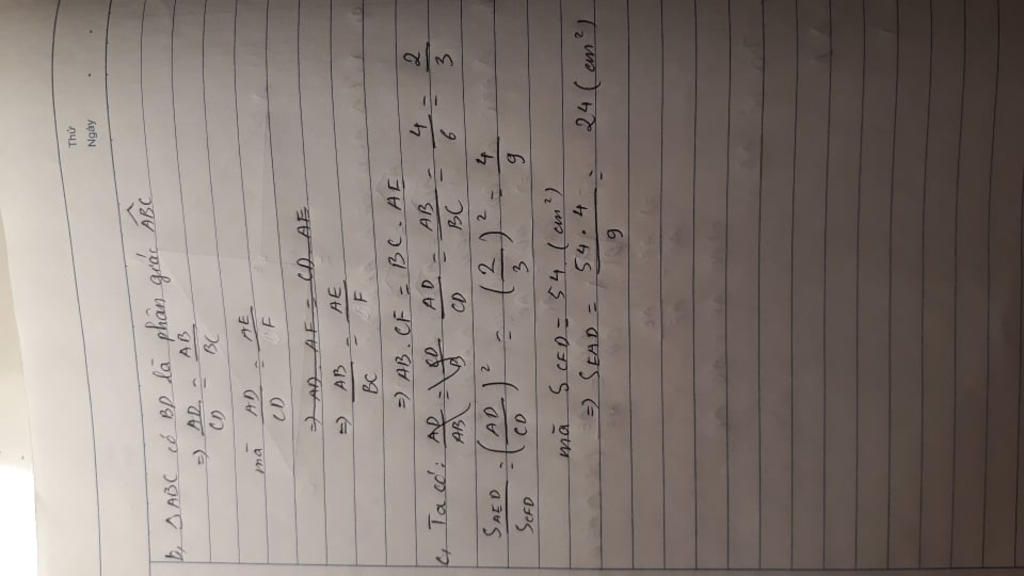 Thứ
Ngày
b, △ABC có BD là phân giác \widehat{ABC}
=> AD/CD = AB/BC
mà AD/CD = AE/F
=> AD AF = CD AE
=> AB/BC = AE/F
=> AB . CF = BC . AE
c, Ta có: AD/AB = AD/CD = AB/BC = 4/6 = 2/3
S_{AED}/S_{CFD} = (AD/CD)² = (2/3)² = 4/9
mà S_{CFD} = 54 (cm²)
=> S_{EAD} = 54.4/9 = 24 (cm²)